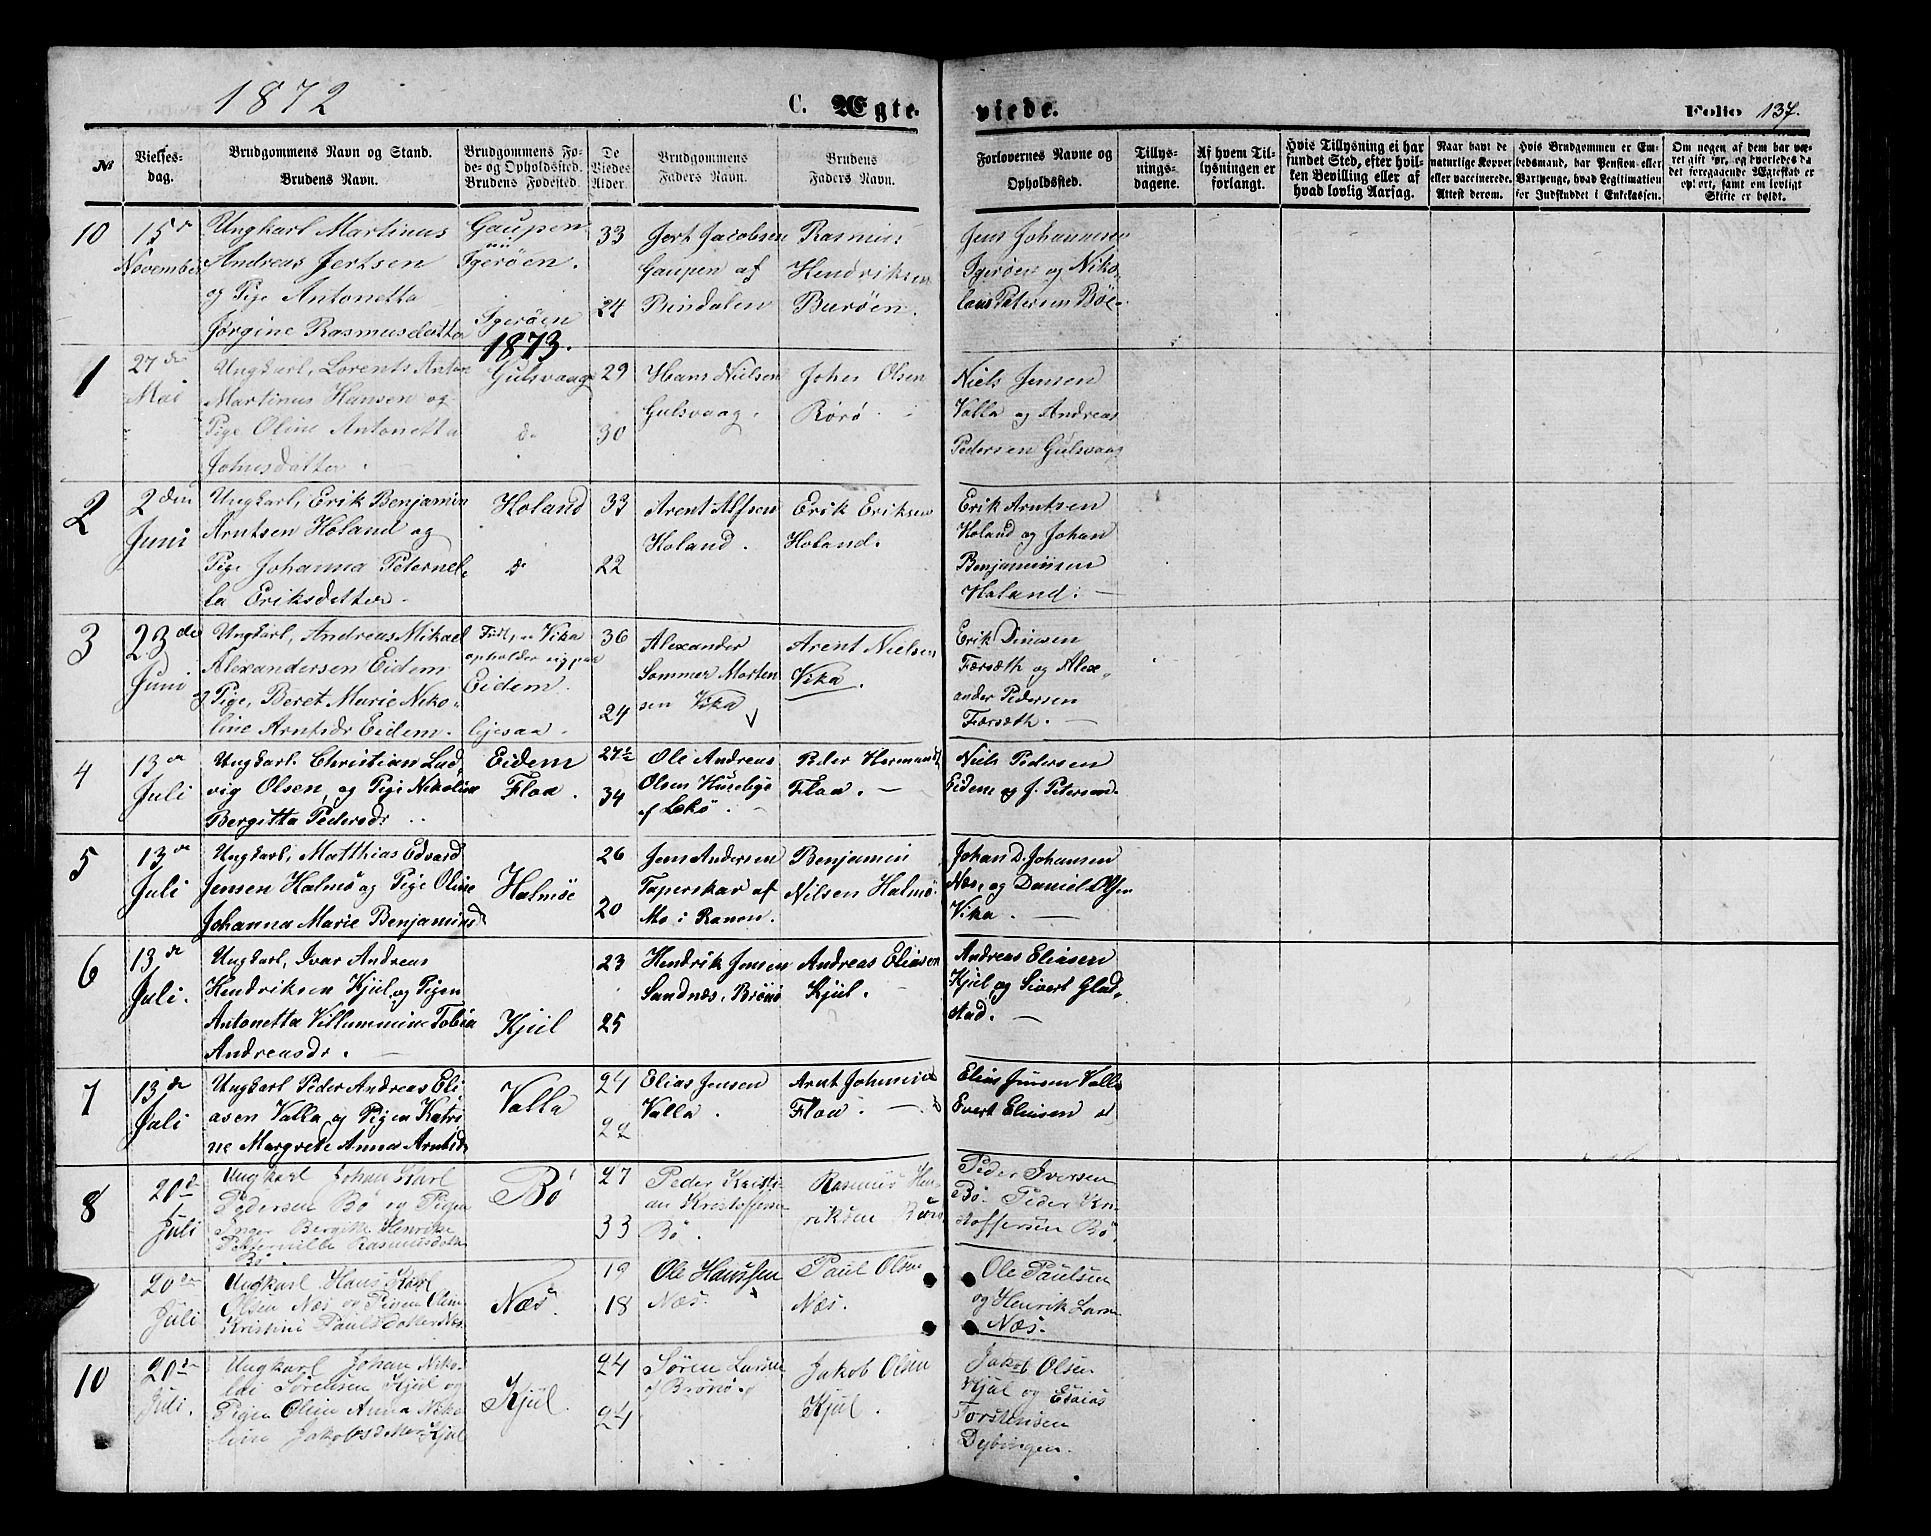 1872
C. Ægte-
viede.
Folio 137.
No
Vielses-
dag.
Brudgommens Navn og Stand.
Brudens Navn.
Brudgommens Fø-
de- og Opholdssted.
Brudens Fødested.
De
Viedes
Alder.
Brudgommens
Faders Navn.
Brudens
Faders Navn.
Forlovernes Navne og
Opholdssted.
Tillys-
nings-
dagene.
Af hvem Til-
lysningen er
forlangt.
Hvis Tillysning ei har
fundet Sted, efter hvil-
ken Bevilling eller af
hvad lovlig Aarsag.
Naar havt de
naturlige Kopper
eller vaccinerede.
Attest derom.
Hvis Brudgommen er Em-
bedsmand, har Pension eller
Vartpenge, hvad Legitimation
for Indskuddet i Enkekassen.
Om nogen af dem har væ-
ret gift før, og hvorledes da
det foregaaende Ægteskab er
ophørt, samt om lovligt
Skifte er holdt.
10
15de
November
Ungkarl Martinus
Andreas Jertsen
og Pige Antonetta
Jørgine Rasmusdatter
Gaupen
Tgerøen.
Tgerøen
33
24
Jert Jacobsen
Gaupen af
Bindalen
Rasmus
Hendriksen
Burøen.
Jens Johannesen
Tgerøen og Niko-
laus Petersen Böe.
1873.
1
27de
Mai
Ungkarl, Lorents Anton
Martinus Hansen og
Pige Oline Antonetta
Johnsdatter.
Gulsvaag
do
29
30
Hans Nielsen
Gulsvaag.
Johns Olsen
Rørø.
Niels Jensen
Valla og Andreas
Pedersen Gulsvaag
2
2den
Juni
Ungkarl, Erik Benjamin
Arntsen Holand og
Pige Johanna Peternel-
la Eriksdatter.
Holand
do
33
22
Arent Alfsen
Holand.
Erik Eriksen
Holand.
Erik Arntsen
Holand og Johan
Benjaminsen
Holand.
3
23de
Juni
Ungkarl, Andreas Mikael
Alexandersen Eidem
og Pige, Beret Marie Niko-
line Arntsdr Eidem.
Født, i Vika
opholder sig paa
Eidem.
ligesaa.
36
24
Alexander
Sommer Morten
sen Vika
Arent Nielsen
Vika.
Erik Dinesen
Færsæth og Alex-
ander Pedersen
Færsæth.
4
13de
Juli
Ungkarl. Christian Lud-
vig Olsen, og Pige Nikolina
Bergitta Pedersdr
Eidem
Floa.
27½
34
Ole Andreas
Olsen Huseby
af Lekø
Peder Hermands
Floa.
Niels Pedersen
Eidem og J. Petersen
5
13de
Juli
Ungkarl, Matthias Edvard
Jensen Halmø og Pige Oline
Johanna Marie Benjaminsd
Halmöe
26
20
Jens Andersen
Taperskar af
Mo i Ranen.
Benjamin
Nilsen Halmø
Johan D. Johansen
Næs, og Daniel Olsen
Vika.
6
13de
Juli.
Ungkarl, Ivar Andreas
Hendriksen Kjül og Pigen
Antonetta Villummine Tobia
Andreasdr.
Kjül
23
25
Hendrik Jensen
Sandnæs, Brönö
Andreas Eliasen
Kjül.
Andreas Eliasen
Kjül og Sivert Glad-
stad.
7
13de
Juli
Ungkarl Peder Andreas Eli-
asen Valla og Pigen Katri
ne Margrete Anna Arntsd
Valla
24
Elias Jensen
Valla.
Arnt Johnsen
Floa.
Elias Jensen Valla
Evert Eliasen
8
20de
Juli
Ungkarl Johan Karl
Pedersen Bö og Pigen
Inger Bergitte Henrike
Petternille Rasmusdatter
Bö.
Bö
27
33
Peder Kristi-
an Kristoffersen
Bö.
Rasmus Hen-
riksen
Peder Iversen
Bö. Peder Kri
stoffersen Bö.
20de
Juli
Ungkarl Hans Karl
Olsen Næs og Pigen Oline
Kristine Paulsdatter Næs
Næs.
19
18
Ole Hanssen
Næs.
Paul Olsen
Næs.
Ole Paulsen
og Henrik Larsen
Næs.
10
20de
Juli.
Ungkarl Johan Niko-
lai Sörensen Kjül og
Pigen Oline Anna Niko
line Jakobsdatter Kjül
Kjül.
24
24
Sören Larsen
af Brönö
Jakob Olsen
Kjül.
Jakob Olsen
Kjül og Esaias
Torstensen
Dybingen.